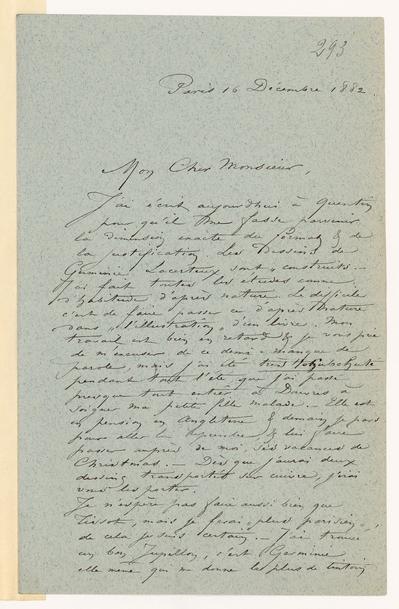 293
Paris 16 Décembre 1882.
Mon Cher Monsieur,
J'ai écrit aujourd'hui à Quentin
pour qu'il me fasse parvenir
la dimension exacte du format & de
la justification. Les Dessins de
Germinie Lacerteux sont "construits" -
j'ai fait toutes les études comme
d'habitude d'après nature. Le difficile
c'est de faire passer ce d'après nature
dans "l'illustration" d'un livre. Mon
travail est bien en retard & je vous prie
de m'excuser de ce demi-manque de
parole, mais j'ai été très
pendant tout l'été que j'ai passé
presque tout entier à Douvres à
soigner ma petite fille malade. - Elle est
en pension en Angleterre & demain je pars
pour aller la reprendre & lui faire
passer auprès de moi ses vacances de
Christmas. - Dès que j'aurai deux
dessins transportés sur cuivre, j'irai
vous les porter.
Je n'espère pas faire aussi bien que
Tissot, mais je ferai "plus parisien",
de cela je suis certain. - J'ai trouvé
un bon Jupillon, c'est Germinie
elle même qui me donne le plus de tintouin